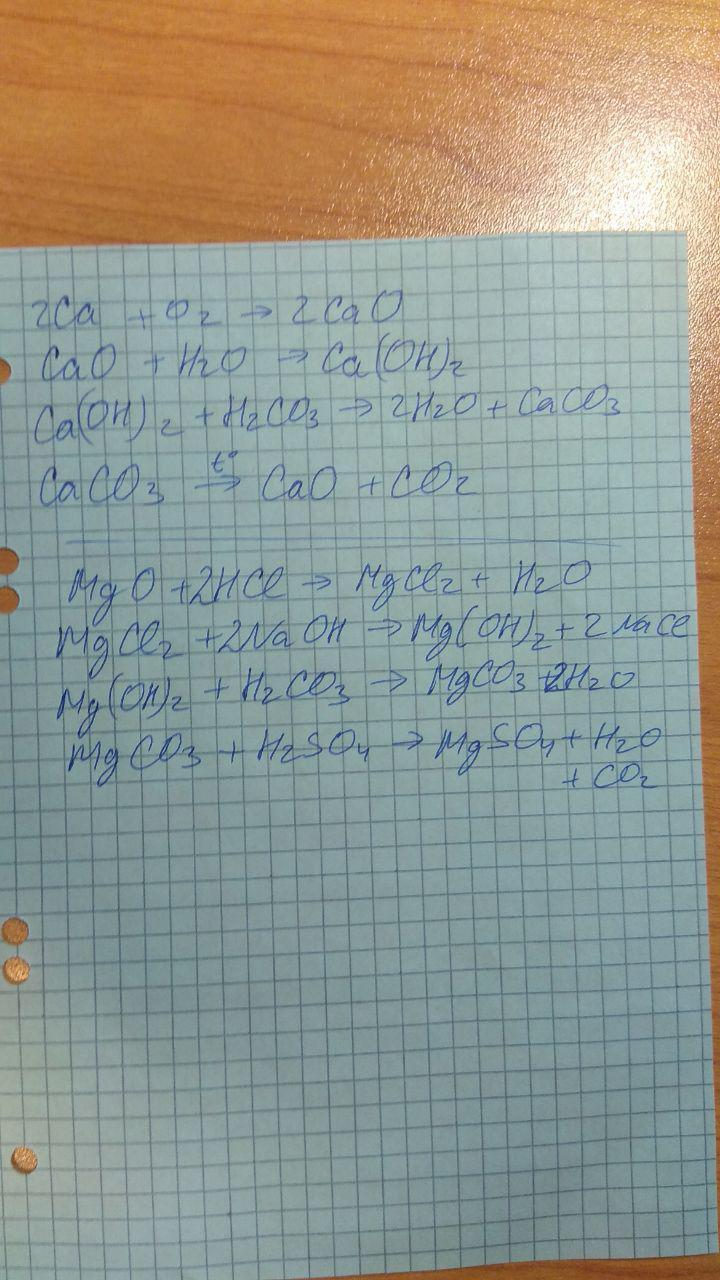 2Ca + O2 → 2CaO
CaO + H2O → Ca(OH)2
Ca(OH)2 + H2CO3 → 2H2O + CaCO3
CaCO3 t°→ CaO + CO2
MgO + 2HCl → MgCl2 + H2O
MgCl2 + 2NaOH → Mg(OH)2 + 2NaCl
Mg(OH)2 + H2CO3 → MgCO3 + 2H2O
MgCO3 + H2SO4 → MgSO4 + H2O
+ CO2